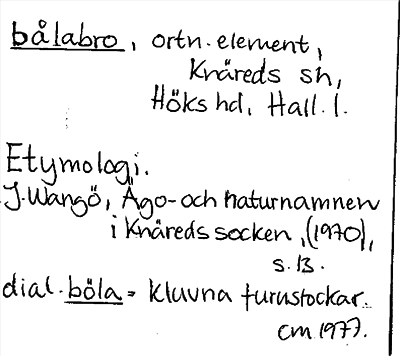 bålabro, ortn.element,
Knäreds sn,
Höks hd, Hall. l.
Etymologi.
J.Wangö, Ägo- och naturnamnen
i Knäreds socken, (1970),
s. 13.
dial. böla = kluvna furustockar.
CM 1977.